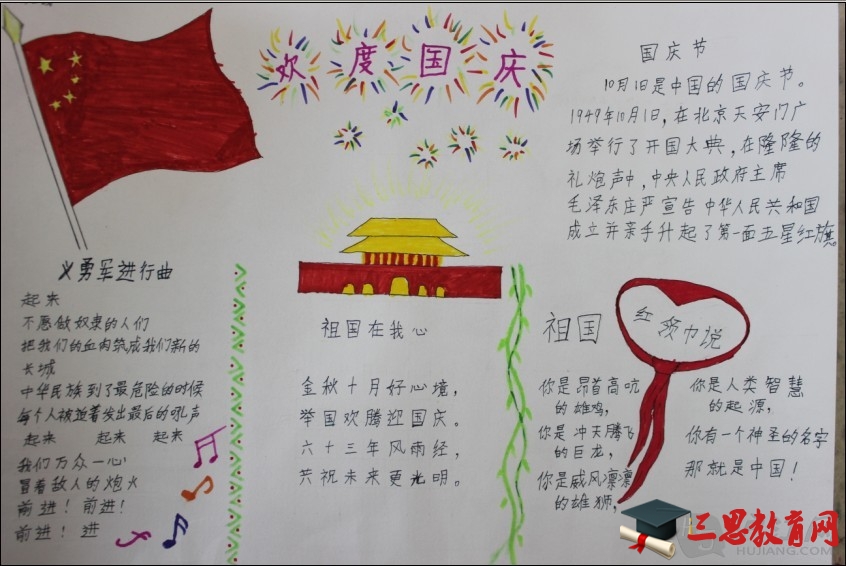 欢度国庆
国庆节
10月1日是中国的国庆节。
1949年10月1日,在北京天安门广
场举行了开国大典,在隆隆的
礼炮声中,中央人民政府主席
毛泽东庄严宣告中华人民共和国
成立并亲手升起了第一面五星红旗。
义勇军进行曲
起来
不愿做奴隶的人们
把我们的血肉筑成我们新的
长城
中华民族到了最危险的时候
每个人被迫着发出最后的吼声
起来 起来 起来
我们万众一心
冒着敌人的炮火
前进!前进!
前进!进
祖国在我心
金秋十月好心境,
举国欢腾迎国庆。
六十三年风雨经,
共祝未来更光明。
祖国
红领巾说
你是昂首高吭
的雄鸡,
你是冲天腾飞
的巨龙,
你是威风凛凛
的雄狮,
你是人类智慧
的起源,
你有一个神圣的名字
那就是中国!
三思教育网
HUJIANG.COM